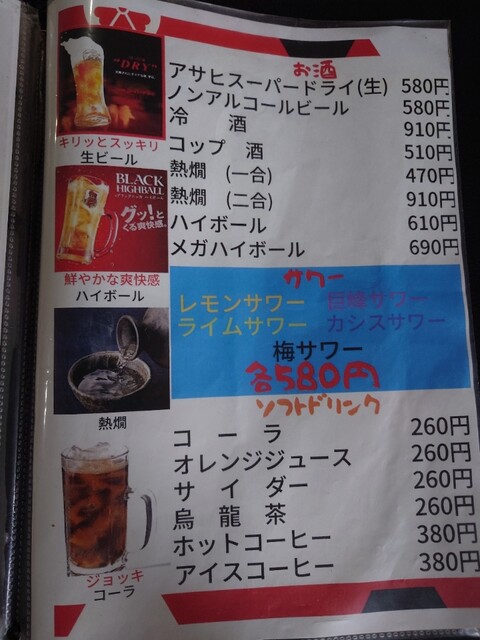 お酒
アサヒスーパードライ(生) 580円
ノンアルコールビール 580円
冷 酒 910円
コップ 酒 510円
熱燗 (一合) 470円
熱燗 (二合) 910円
ハイボール 610円
メガハイボール 690円
"DRY"
キリッとスッキリ
生ビール
BLACK
HIGHBALL
グッ!と
くる爽快感。
鮮やかな爽快感
ハイボール
熱燗
サワー
レモンサワー 巨峰サワー
ライムサワー カシスサワー
梅サワー
各580円
ソフトドリンク
コーラ 260円
オレンジジュース 260円
サイダー 260円
烏龍茶 260円
ホットコーヒー 380円
アイスコーヒー 380円
ジョッキ
コーラ